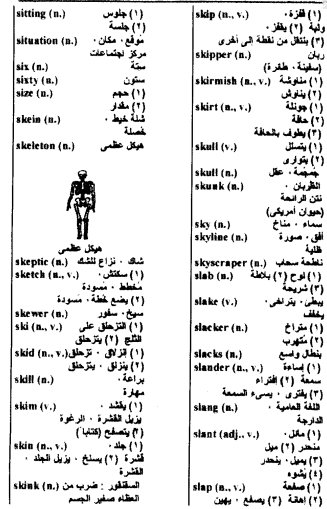 sitting (n.) (١) جلوس
(٢) جلسة
situation (n.) موقع ، مكان ،
مركز اجتماعات
six (n.) ستة
sixty (n.) ستون
size (n.) (١) حجم
(٢) مقدار
skein (n.) شلة خيط ،
خصلة
skeleton (n.) هيكل عظمى
هيكل عظمى
skeptic (n.) شاك ، نزاع للشك
sketch (n., v.) (١) سكتش ،
مخطط ، مسودة
(٢) يضع خطة ، مسودة
skewer (n.) سيخ ، سفود
ski (n., v.) (١) التزحلق على
الثلج (٢) يتزحلق
skid (n., v.) (١) انزلاق ، تزحلق
(٢) ينزلق ، يتزحلق
skill (n.) براعة ،
مهارة
skim (v.) (١) يقشد ،
يزيل القشرة ، الرغوة
(٢) يتصفح (كتابا)
skin (n., v.) (١) جلد ،
قشرة (٢) يسلخ ، يزيل الجلد ،
القشرة
skink (n.) السقنقور : ضرب من
العظاء صغير الجسم
skip (n., v.) (١) قفزة ،
وثبة (٢) يقفز ،
(٣) ينتقل من نقطة إلى أخرى
skipper (n.) ربان
(سفينة ، طائرة)
skirmish (n., v.) (١) مناوشة
(٢) يناوش
skirt (n., v.) (١) جونلة
(٢) حافة
(٣) يطوف بالحافة
skull (v.) (١) يتسلل
(٢) يتوارى
skull (n.) جمجمة ، عقل
skunk (n.) الظربان ،
نتن الرائحة
(حيوان أمريكى)
sky (n.) سماء ، مناخ
skyline (n.) أفق ، صورة
ظلية
skyscraper (n.) ناطحة سحاب
slab (n.) (١) لوح (٢) بلاطة
(٣) شريحة
slake (v.) يبطئ ، يتراخى ،
يخفف
slacker (n.) (١) متراخ
(٢) متهرب
slacks (n.) بنطال واسع
slander (n., v.) (١) إساءة
سمعة (٢) افتراء
(٣) يفترى ، يسىء السمعة
slang (n.) اللغة العامية ،
الدارجة
slant (adj., v.) (١) مائل ،
منحدر (٢) ميل
(٣) يميل ، ينحدر
(٤) يشوه
slap (n., v.) (١) صفعة
(٢) إهانة (٣) يصفع ، يهين